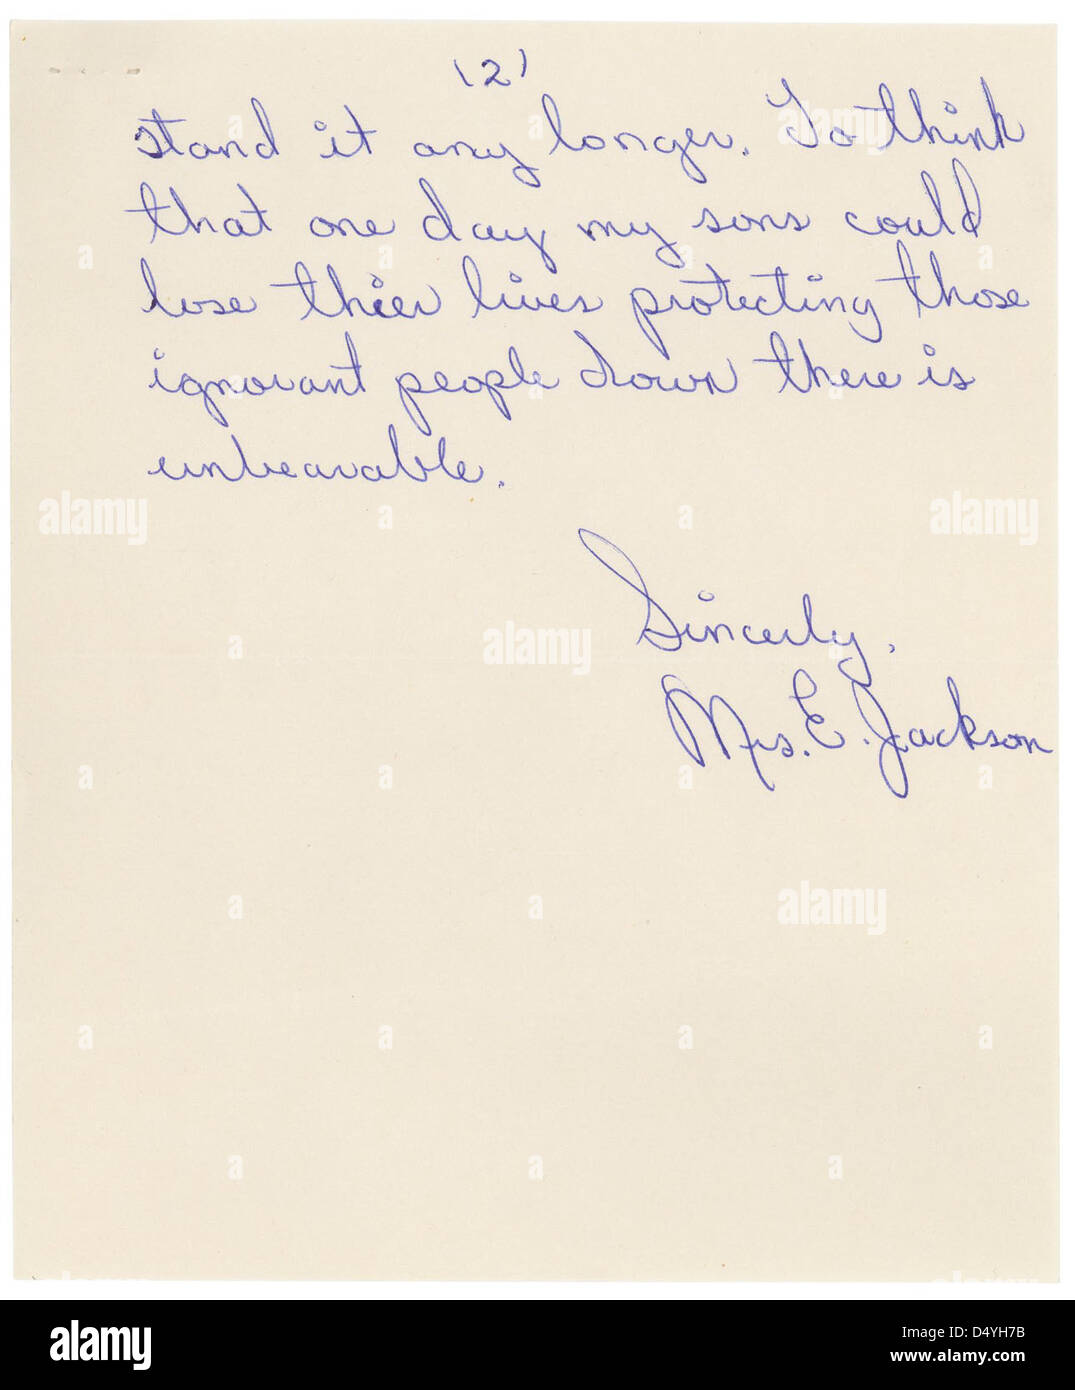 (2)
stand it any longer. To think
that one day my sons could
lose thier lives protecting those
ignorant people down there is
unbearable.
Sincerly,
Mrs. E. Jackson
alamy
Image ID: D4YH7B
www.alamy.com